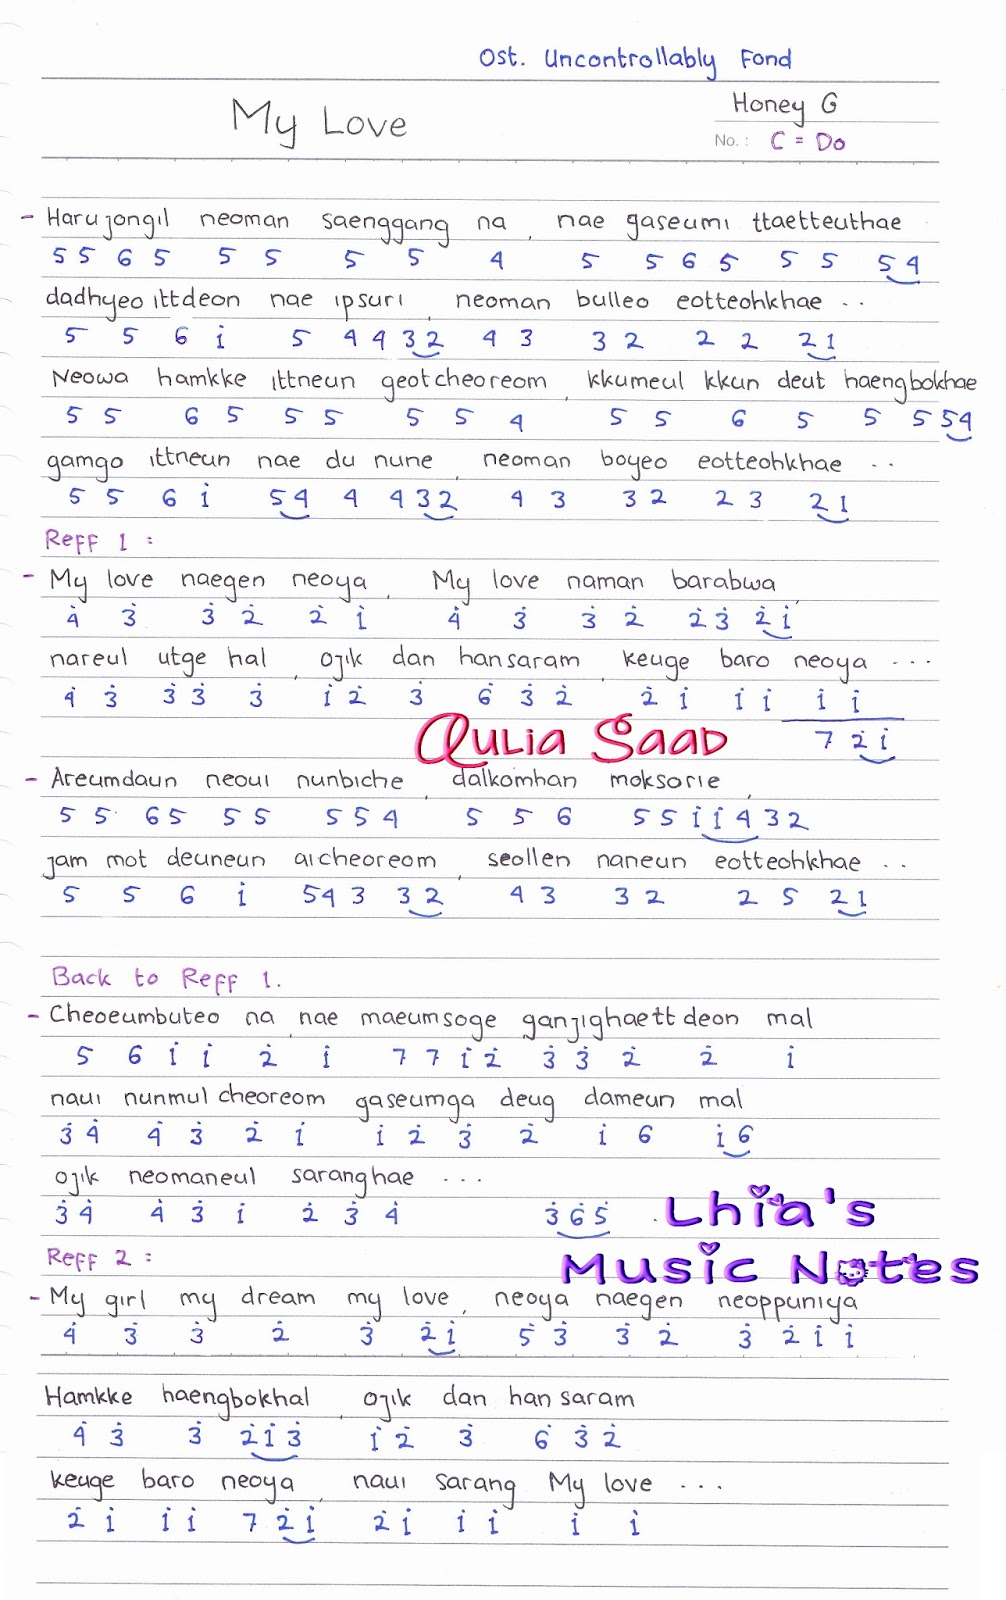 Ost. Uncontrollably Fond
My Love
Honey G
No. : C = Do
- Harujongil neoman saenggang na, nae gaseumi ttaetteuthae
5 5 6 5 5 5 5 5 4 5 5 6 5 5 5 5 4
dadhyeo ittdeon nae ipsuri, neoman bulleo eotteohkhae ..
5 5 6 i 5 4 4 3 2 4 3 3 2 2 2 2 1
Neowa hamkke ittneun geotcheoreom, kkumeul kkun deut haengbokhae
5 5 6 5 5 5 5 5 4 5 5 6 5 5 5 5 4
gamgo ittneun nae du nune, neoman boyeo eotteohkhae ..
5 5 6 i 5 4 4 4 3 2 4 3 3 2 2 3 2 1
Reff 1 :
- My love naegen neoya, My love naman barabwa,
4̇ 3̇ 3̇ 2̇ 2̇ i 4̇ 3̇ 3̇ 2̇ 2̇ 3̇ 2̇ i
nareul utge hal, ojik dan hansaram, keuge baro neoya ...
4̇ 3̇ 3̇ 3̇ 3̇ i 2̇ 3̇ 6 3̇ 2̇ 2̇ i i i i i
Qulia Saad
7 2̇ i
- Areumdaun neoui nunbiche, dalkomhan moksorie,
5 5 6 5 5 5 5 5 4 5 5 6 5 5 i i 4 3 2
jam mot deuneun aicheoreom, seollen naneun eotteohkhae ..
5 5 6 i 5 4 3 3 2 4 3 3 2 2 5 2 1
Back to Reff 1.
- Cheoeumbuteo na, nae maeumsoge ganjighaettdeon mal
5 6 i i 2̇ i 7 7 i 2̇ 3̇ 3̇ 2̇ 2̇ i
naui nunmul cheoreom gaseumga deug dameun mal
3̇ 4̇ 4̇ 3̇ 2̇ i i 2̇ 3̇ 2̇ i 6 i 6
ojik neomaneul saranghae ...
3̇ 4̇ 4̇ 3̇ i 2̇ 3̇ 4̇ 3̇ 6̇ 5̇
Lhia's
Music Notes
Reff 2 :
- My girl my dream my love, neoya naegen neoppuniya
4̇ 3̇ 3̇ 2̇ 3̇ 2̇ i 5̇ 3̇ 3̇ 2̇ 3̇ 2̇ i i
Hamkke haengbokhal, ojik dan han saram
4̇ 3̇ 3̇ 2̇ i 3̇ i 2̇ 3̇ 6 3̇ 2̇
keuge baro neoya, naui sarang My love ...
2̇ i i i 7 2̇ i 2̇ i i i i i